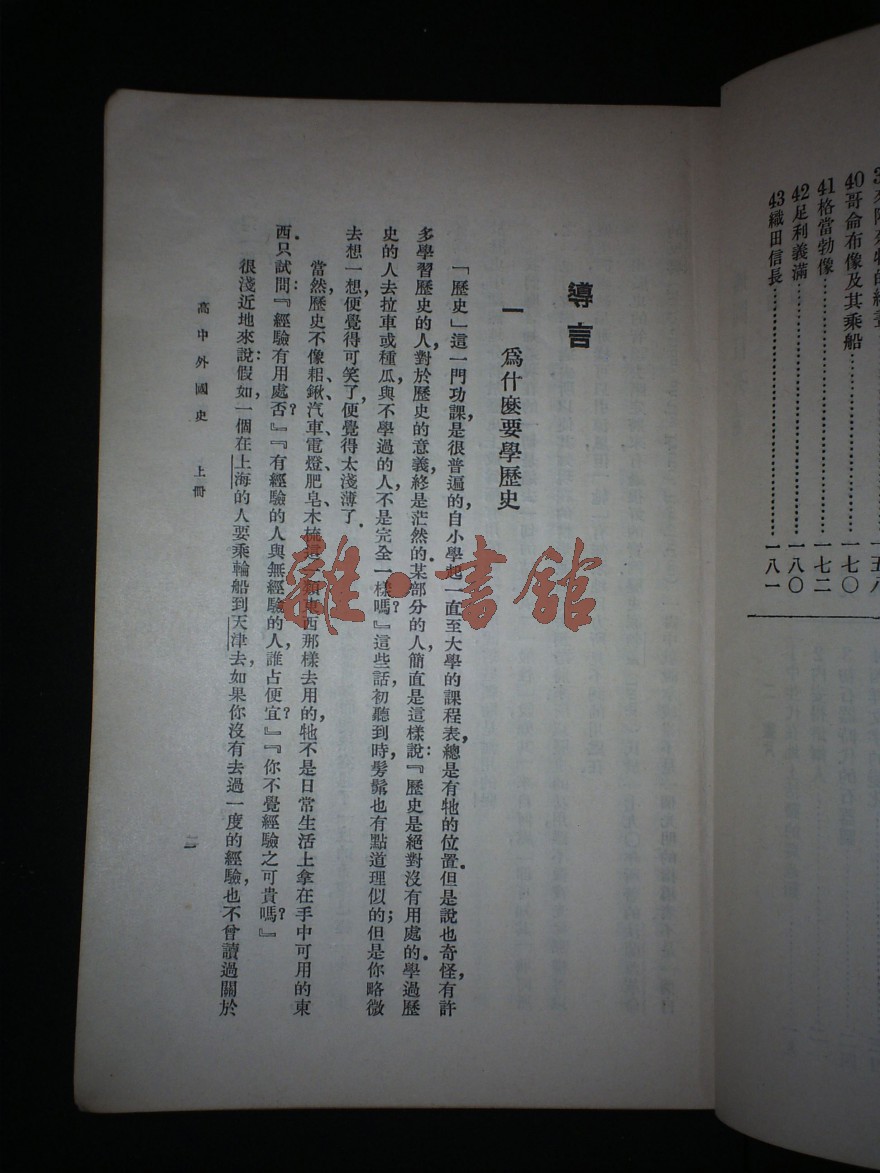 40哥侖布像及其乘船…………一七〇
41格當勃像…………一七二
42足利義滿…………一八〇
43織田信長…………一八一
導言
一 爲什麼要學歷史
「歷史」這一門功課，是很普遍的，自小學起一直至大學的課程表，總是有牠的位置．但是說也奇怪，有許
多學習歷史的人，對於歷史的意義，終是茫然的．某部分的人，簡直是這樣說：『歷史是絕對沒有用處的．學過歷
史的人去拉車或種瓜，與不學過的人，不是完全一樣嗎？』這些話，初聽到時，髣髴也有點道理似的；但是你略微
去想一想，便覺得可笑了，便覺得太淺薄了．
當然，歷史不像耜、鍬、汽車、電燈、肥皂、木梳這一類東西那樣去用的，牠不是日常生活上拿在手中可用的東
西．只試問：『經驗有用處否？』『有經驗的人與無經驗的人，誰占便宜？』『你不覺經驗之可貴嗎？』
很淺近地來說：假如，一個在上海的人要乘輪船到天津去，如果你沒有去過一度的經驗，也不曾讀過關於
高中外國史 上冊
雜·書館